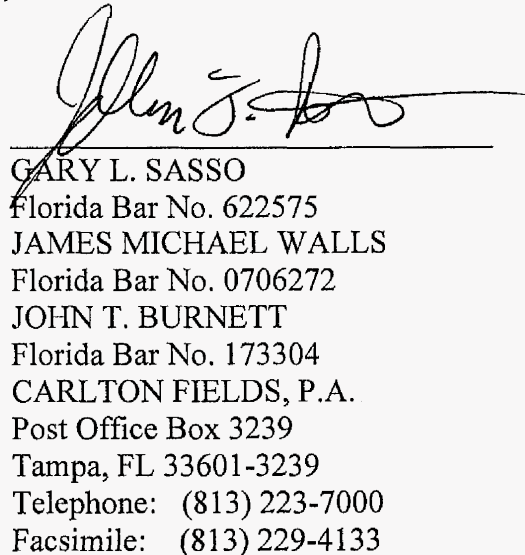 John T.
GARY L. SASSO
Florida Bar No. 622575
JAMES MICHAEL WALLS
Florida Bar No. 0706272
JOHN T. BURNETT
Florida Bar No. 173304
CARLTON FIELDS, P.A.
Post Office Box 3239
Tampa, FL 33601-3239
Telephone: (813) 223-7000
Facsimile: (813) 229-4133